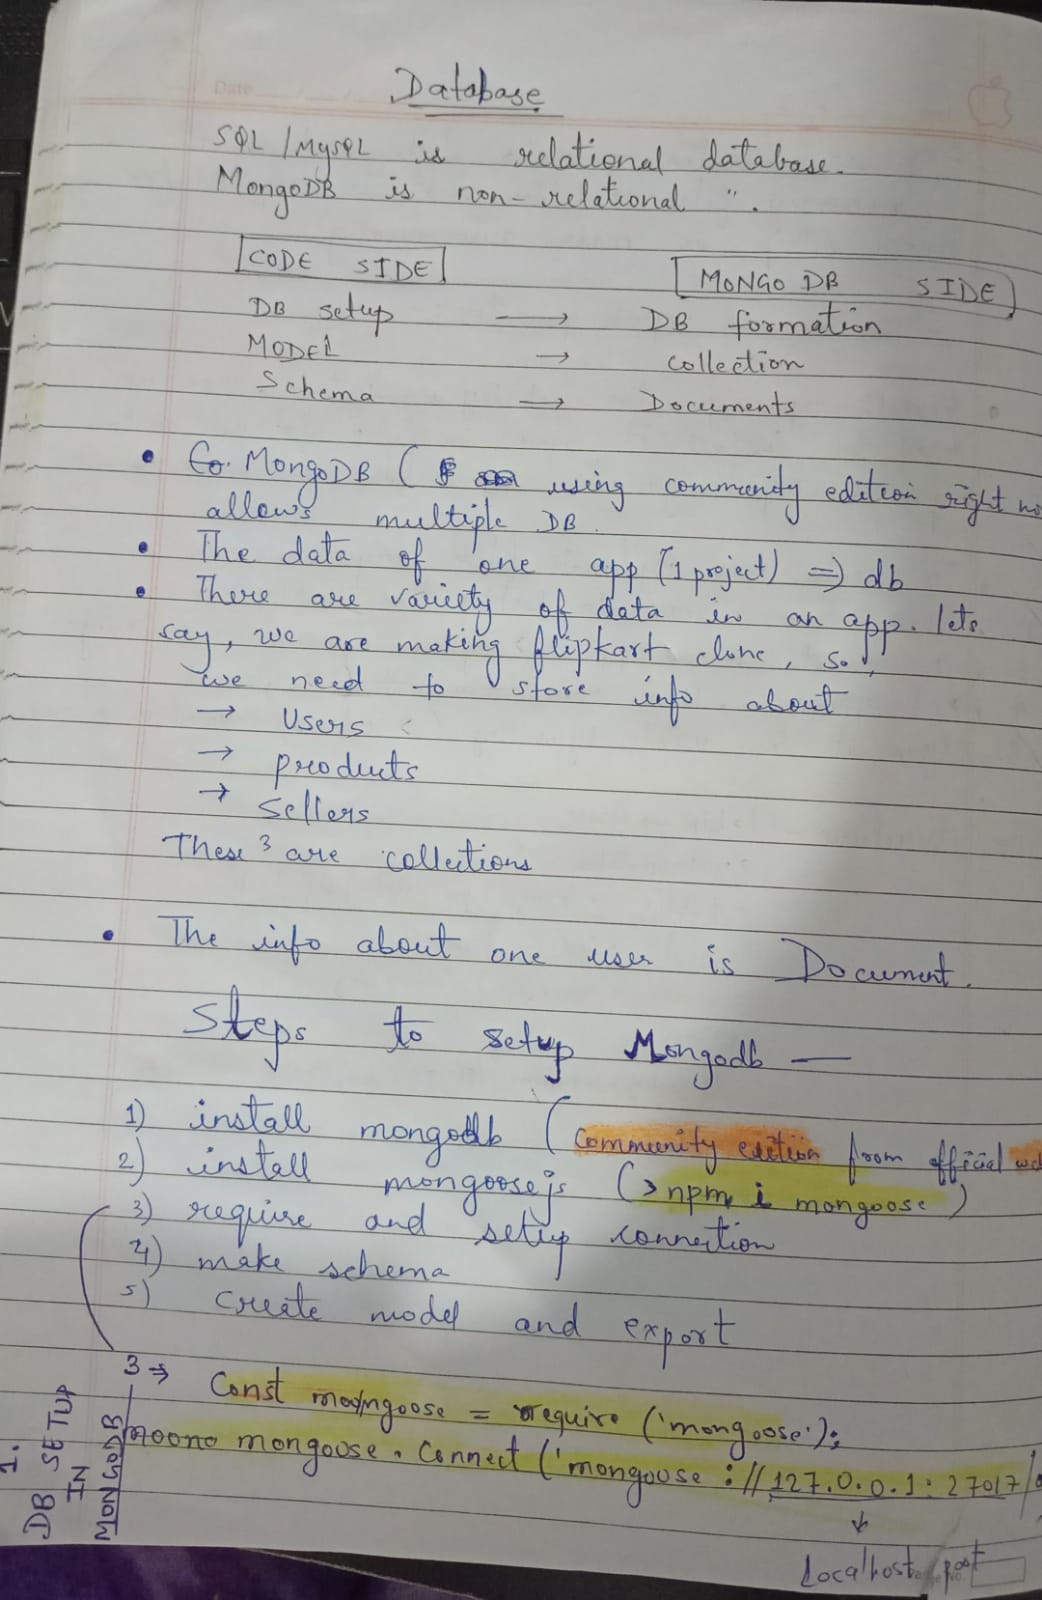 Date
Database
SQL / MySQL is relational database.
MongoDB is non-relational ".
CODE SIDE MONGO DB SIDE
DB setup → DB formation
MODEL → collection
Schema → Documents
• MongoDB ( using community edition right
allows multiple DB.
• The data of one app (1 project) ⇒ db
• There are variety of data in an app. lets
say, we are making flipkart clone, so,
we need to store info about
→ Users
→ products
→ Sellers
These 3 are collections
• The info about one user is Document.
Steps to setup Mongodb —
1) install mongodb (Community edition from official
2) install mongoosejs (>npm i mongoose)
3) require and setup connection
4) make schema
5) create model and export
3 ⇒ Const mongoose = require ('mongoose');
mongoose . Connect ('mongouse ://127.0.0.1:27017/
↓
Localhost port
1.
DB SETUP
IN
MONGODB